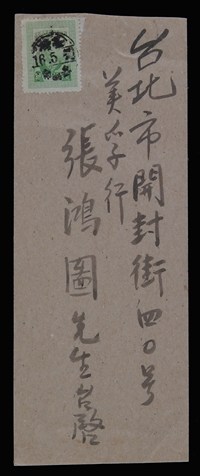 台北市開封街四〇号
美公子行
張鴻圖先生台啓
16.5